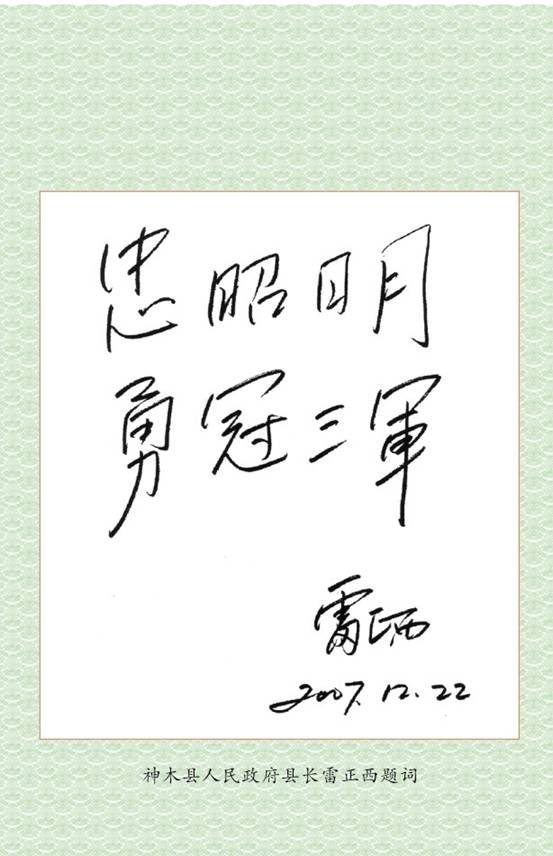 忠昭日月
勇冠三軍
雷正西
2007.12.22
神木县人民政府县长雷正西题词